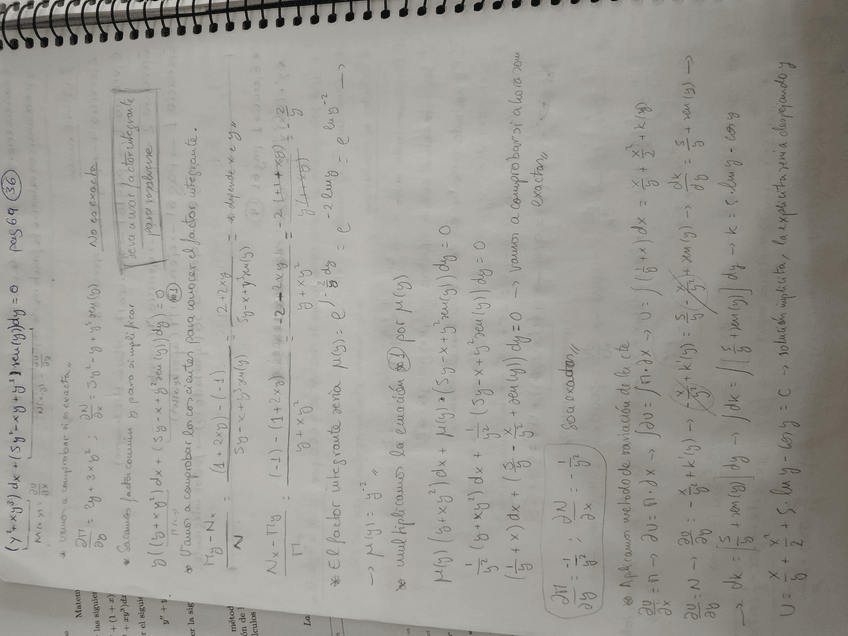 (y²+xy³)dx + (5y²-xy+y³sen(y))dy=0 pag 69 (36)
M(x,y)= ∂U/∂x N(x,y)= ∂U/∂y
* Vamos a comprobar si es exacta.
∂M/∂y = 2y+3xy² ; ∂N/∂x = 5y²-y+y³sen(y) No es exacta
* Sacamos factor común y para simplificar
será usar factor integrante
para resolverse
y((y+xy²)dx + (5y-x+y²sen(y))dy)=0
*1
* Vamos a comprobar los cocientes para conocer el factor integrante.
My-Nx / N = (1+2xy)-(-1) / 5y-x+y²sen(y) = (2+2xy) / 5y-x+y²sen(y) = depende x e y
Nx-My / M = (-1)-(1+2xy) / y+xy² = -2-2xy / y+xy² = -2(1+xy) / y(1+xy) = -2/y
* El factor integrante sería μ(y)= e^∫-2/y dy = e^-2lny = e^lny^-2 →
→ μ(y)= y^-2
* multiplicamos la ecuación *1 por μ(y)
μ(y)(y+xy²)dx + μ(y)*(5y-x+y²sen(y))dy=0
1/y² (y+xy²)dx + 1/y² (5y-x+y²sen(y))dy=0
(1/y + x)dx + (5/y - x/y² + sen(y))dy=0 → Vamos a comprobar si ahora son
exactas
∂M/∂y = -1/y² ; ∂N/∂x = -1/y² son exactas
* Aplicamos método de variación de la cte
∂U/∂x = M → ∂U=M·∂x → ∫∂U=∫M·∂x → U=∫(1/y+x)dx = x/y + x²/2 + k(y)
∂U/∂y = N → ∂U/∂y = -x/y² + k(y) → -x/y² + k(y) = 5/y - x/y² + sen(y) → dk/dy = 5/y + sen(y) →
→ dk = [5/y + sen(y)]dy → ∫dk = ∫[5/y + sen(y)]dy → k = 5·lny - cosy
U = x/y + x²/2 + 5·lny - cosy = C → solución implícita, la explícita sería despejando y